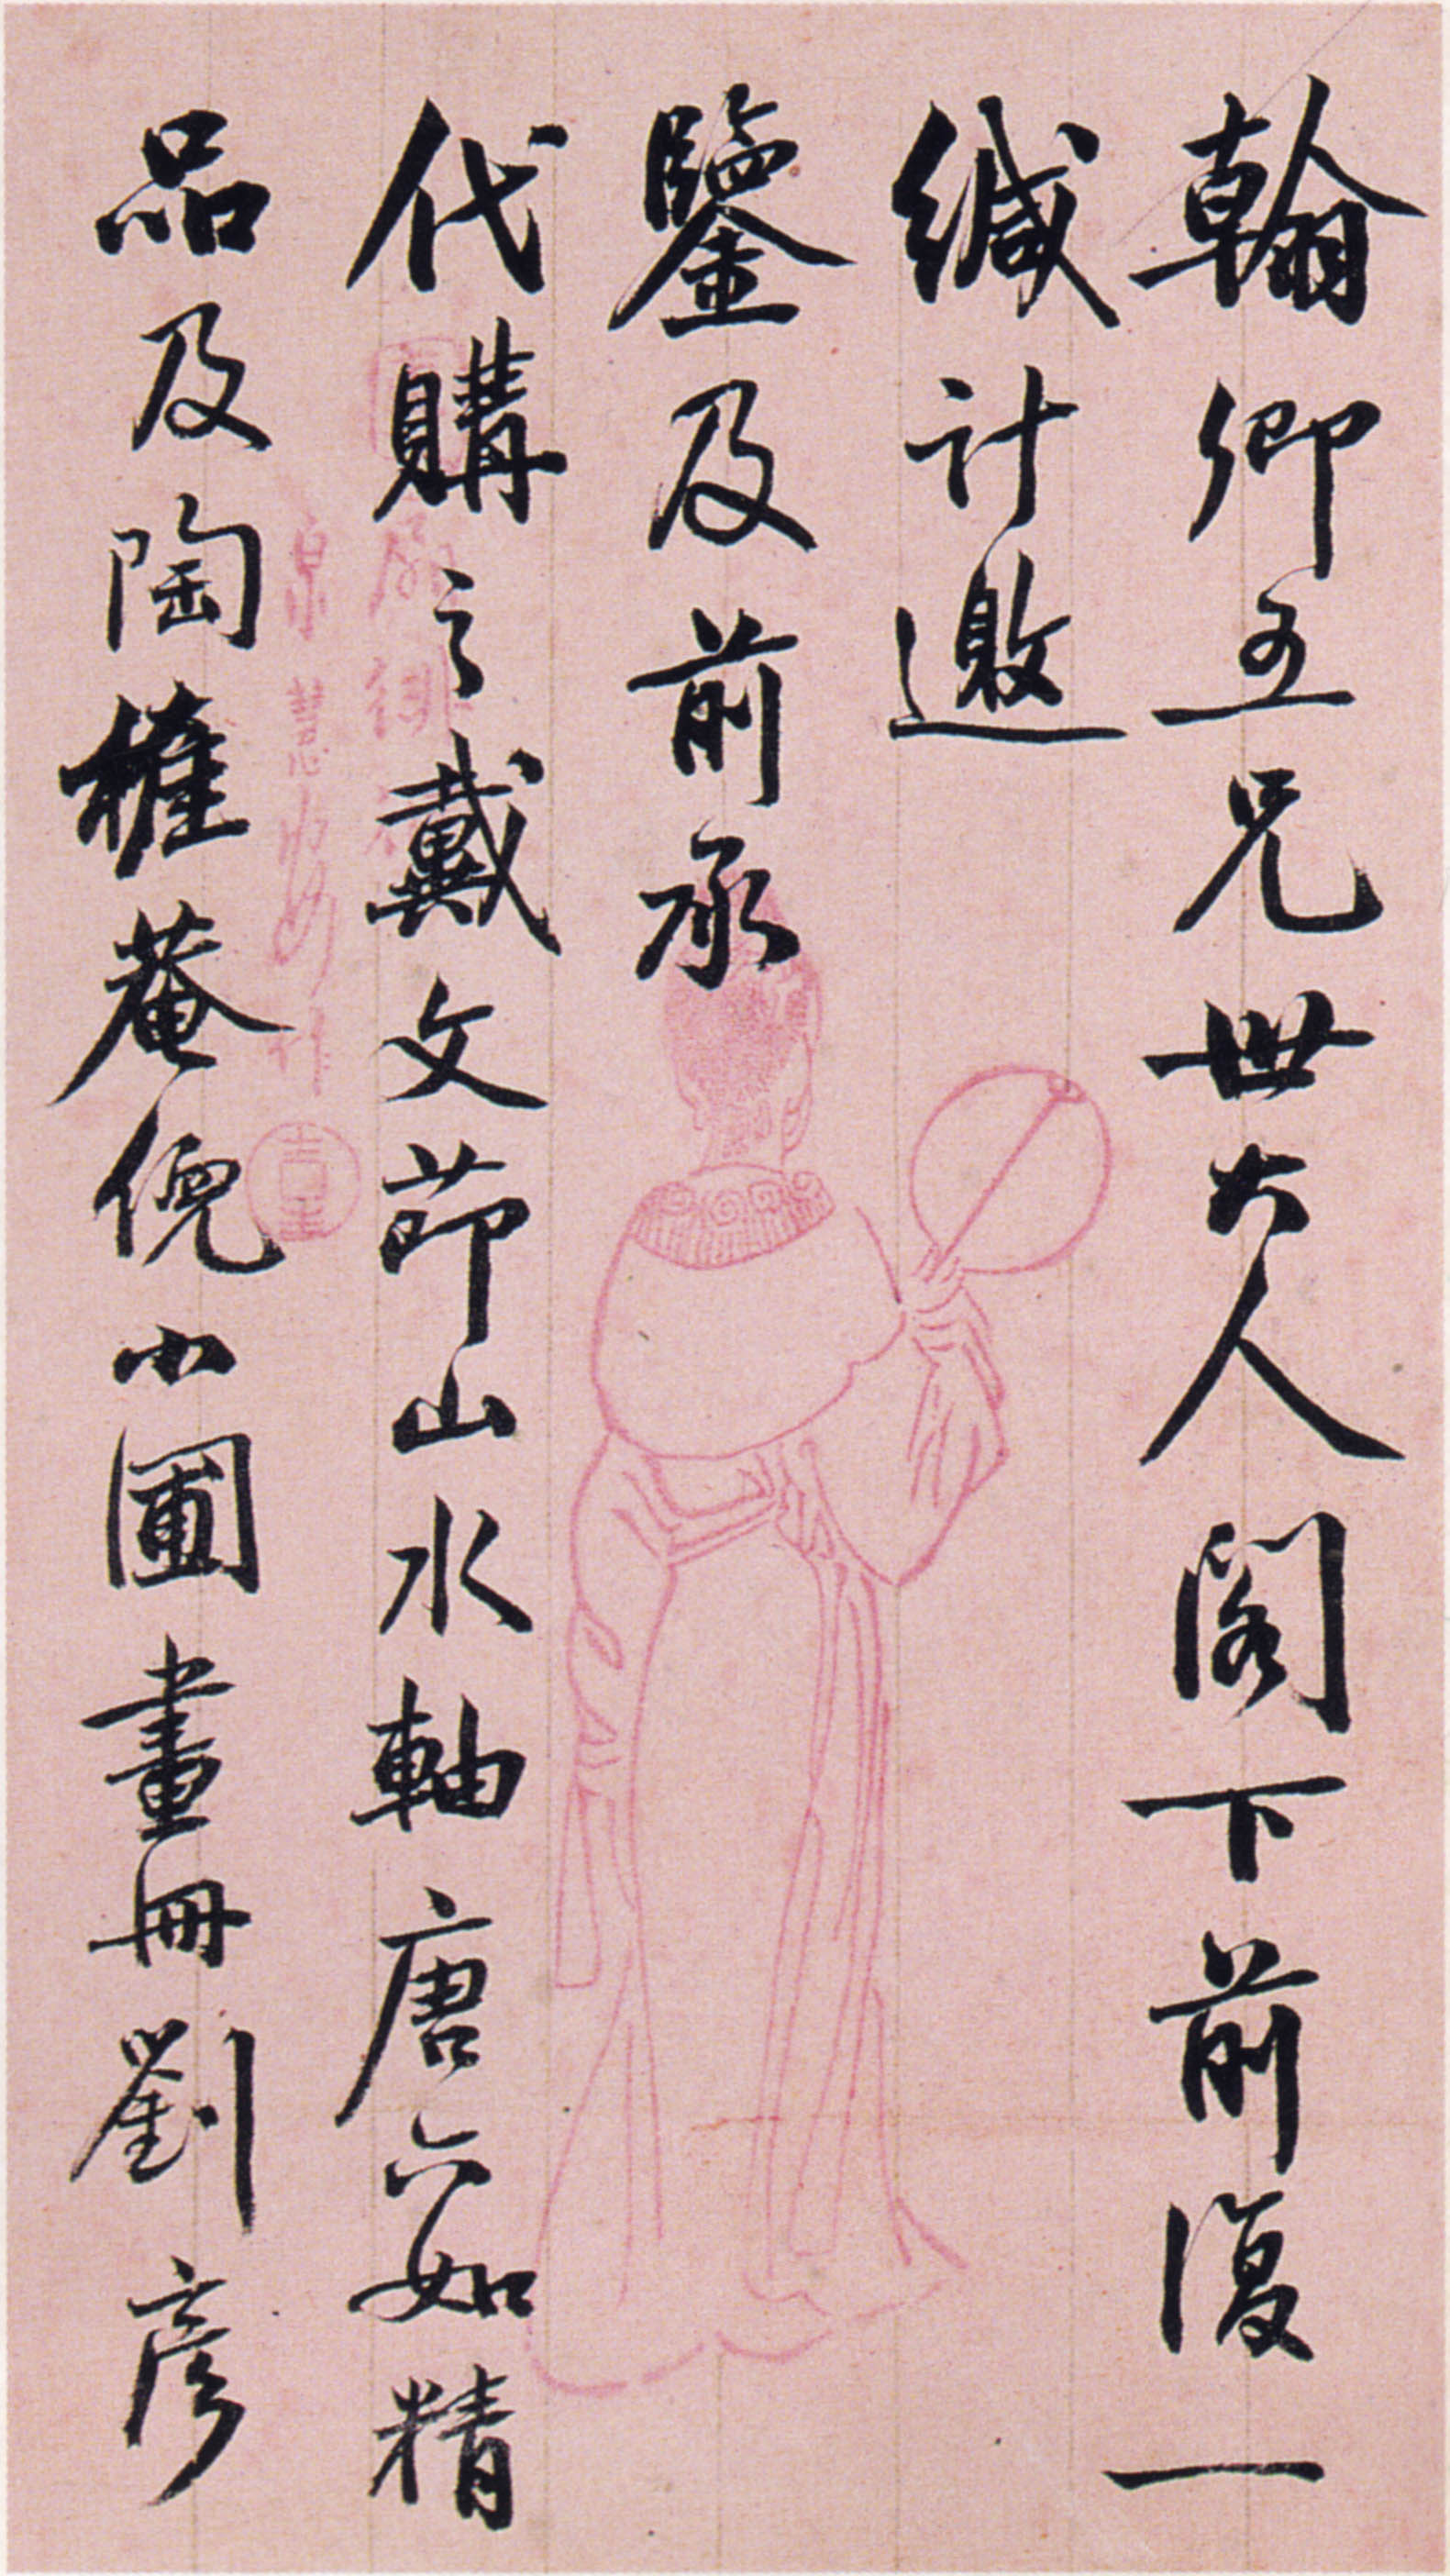 翰卿五兄世大人閣下前復一
緘計邀
鑒及前承
代購之戴文節山水軸唐六如精
品及陶榷菴倪小圃畫冊劉彥